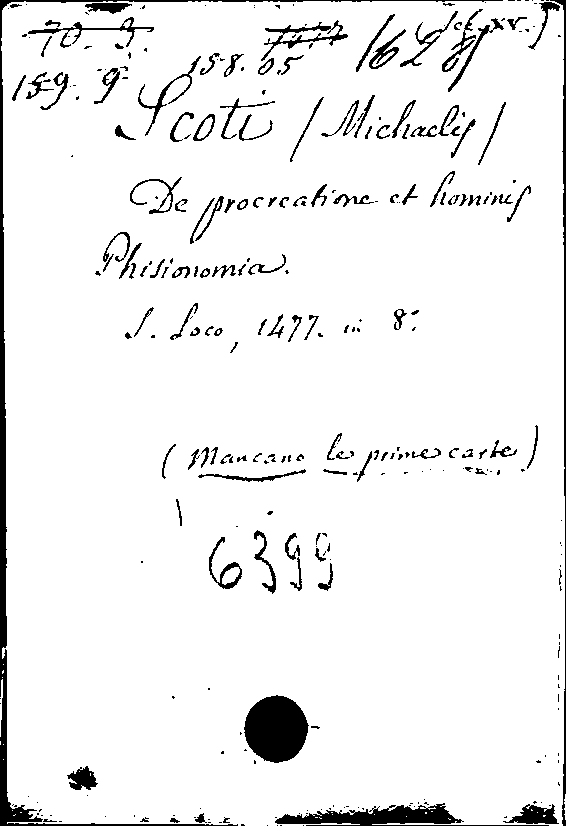 70. 3.
159. 9 158. 05 162
Scoti / Michaelis /
De procreatione et hominis
Phisionomia.
S. Loco, 1477. in 8°.
( Mancano le prime carte )
6399